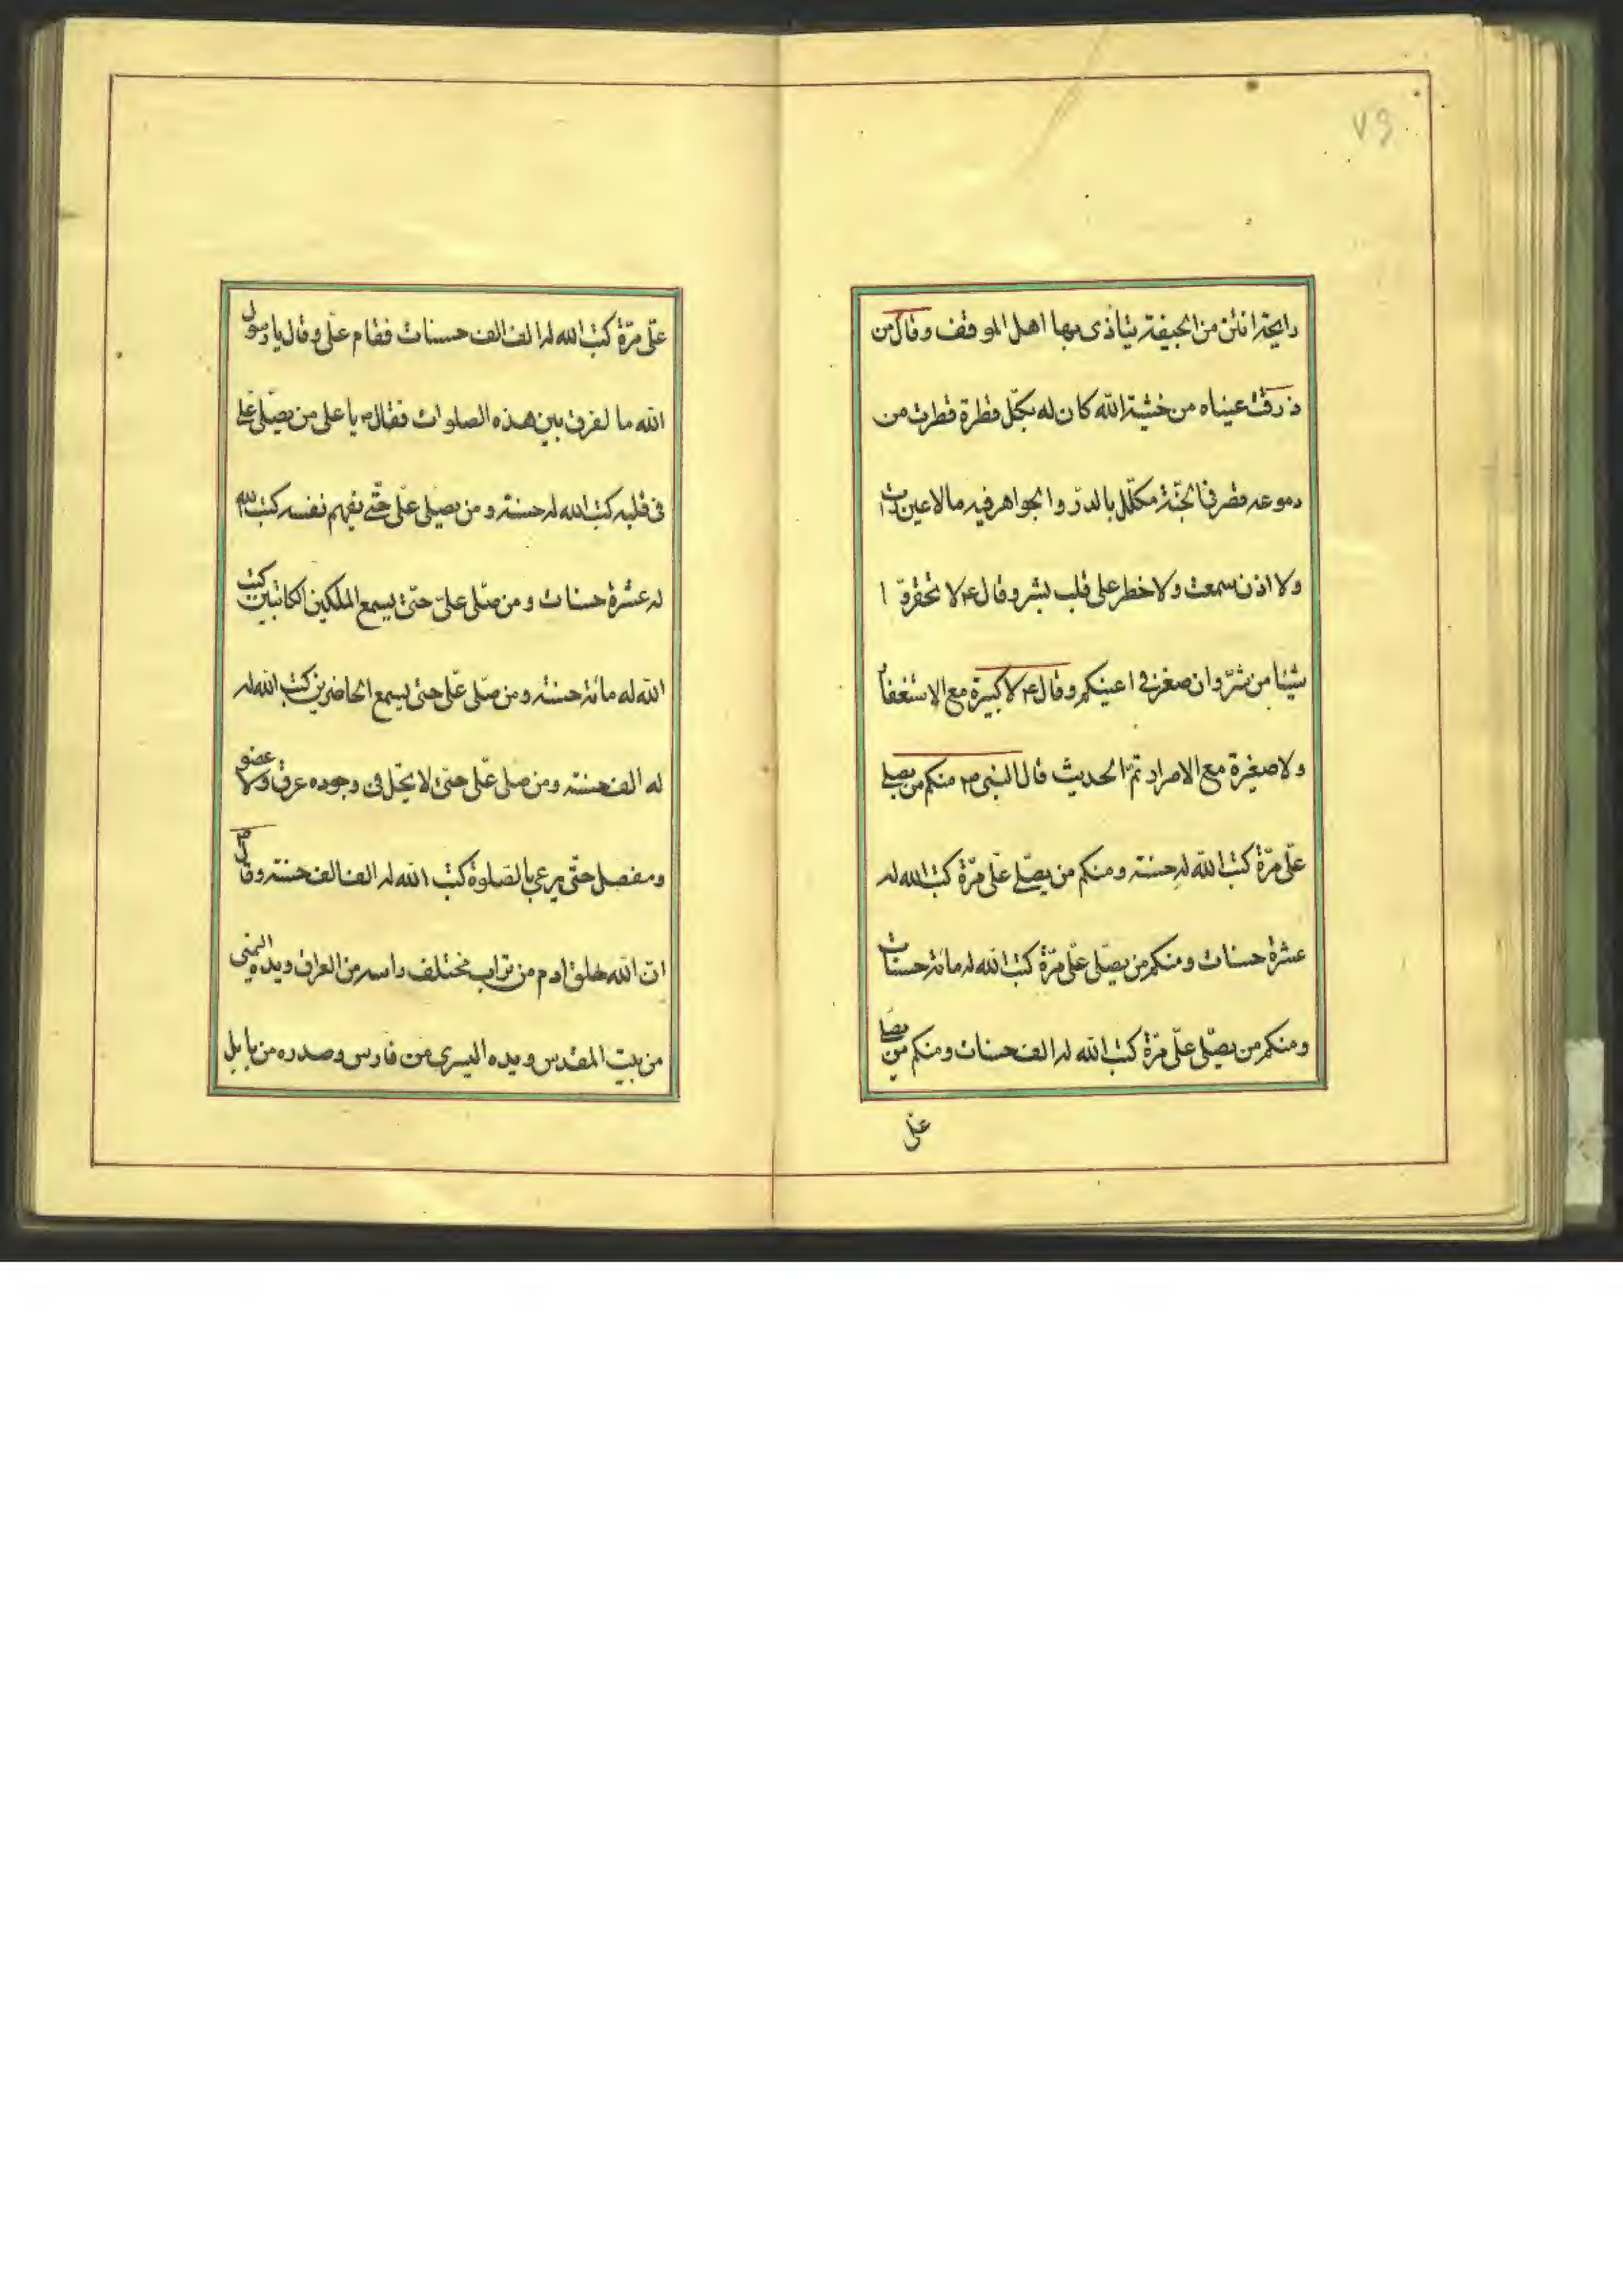 ۷۹
رايحة انتن من الجيفة يتاذى بها اهل الموقف وقال من
ذرفت عيناه من خشية الله كان له بكل قطرة قطرت من
دموعه قصر فى الجنة مكلل بالدر والجواهر فيه مالا عين رات
ولا اذن سمعت ولا خطر على قلب بشر وقال ع لا تحقروا
شيئا من شر وان صغر فى اعينكم وقال ع لا كبيرة مع الاستغفار
ولا صغيرة مع الاصرار تم الحديث قال النبى ص منكم من يصلى
علىّ مرّة كتب الله له حسنة ومنكم من يصلّى علىّ مرّة كتب الله له
عشرة حسنات ومنكم من يصلّى علىّ مرّة كتب الله له مائة حسنات
ومنكم من يصلّى علىّ مرّة كتب الله له الف حسنات ومنكم من يصلى
على
علىّ مرّة كتب الله له الف الف حسنات فقام على وقال يا رسول
الله ما لفرق بين هذه الصلوات فقال ص يا على من يصلّى علىّ
فى قلبه كتب الله له حسنة ومن يصلى علىّ حتّى يفهم نفسه كتب الله
له عشرة حسنات ومن صلّى علىّ حتى يسمع الملكين الكاتبين كتب
الله له مائة حسنة ومن صلّى علىّ حتى يسمع الحاضرين كتب الله له
له الف حسنة ومن صلى علّى حتى لا يخل فى وجوده عرق ولا عضو
ومفصل حتّى يرعى بالصلوة كتب الله له الف الف حسنة وقال ص
ان الله خلق ادم من تراب مختلف راسه من العراق ويده اليمنى
من بيت المقدس ويده اليسرى من فارس وصدره من بابل